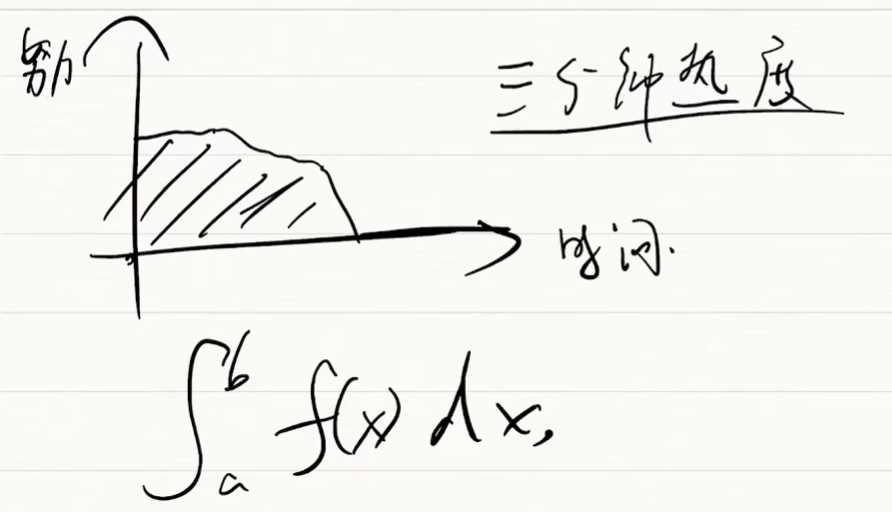 努力
三分钟热度
时间.
∫_a^b f(x) dx,